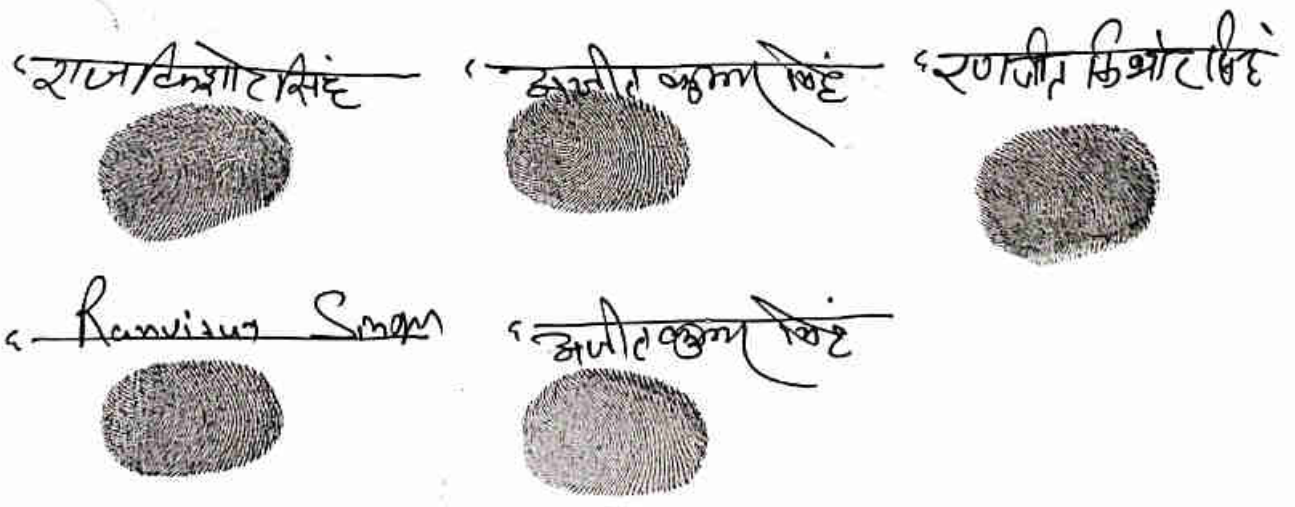 राज किशोर सिंह
अजीत कुमार सिंह
रणजीत किशोर सिंह
Ranvijay Singh
अजीत कुमार सिंह